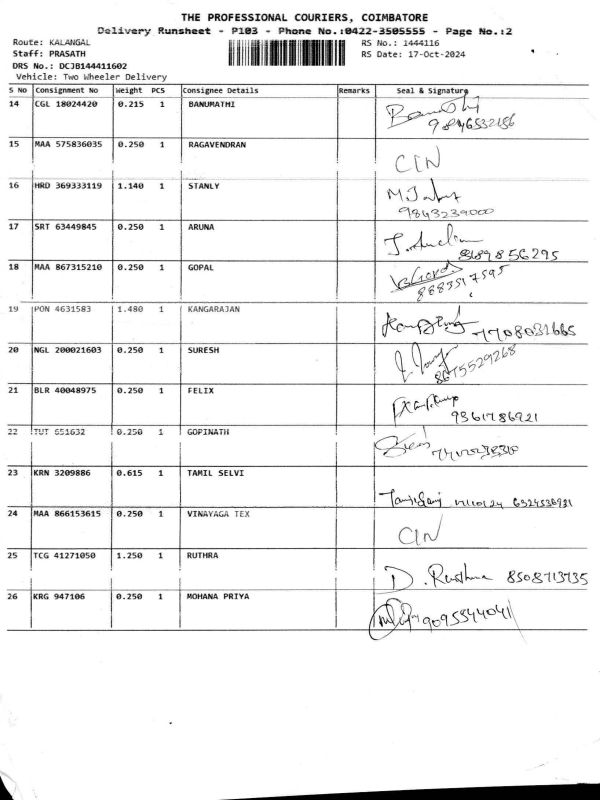 THE PROFESSIONAL COURIERS, COIMBATORE
Delivery Runsheet - P103 - Phone No.:0422-3505555 - Page No.:2
Route: KALANGAL RS No.: 1444116
Staff: PRASATH RS Date: 17-Oct-2024
DRS No.: DCJB144411602
Vehicle: Two Wheeler Delivery
S No Consignment No Weight PCS Consignee Details Remarks Seal & Signature
14 CGL 18024420 0.215 1 BANUMATHI
9846532186
15 MAA 575836035 0.250 1 RAGAVENDRAN
CIN
16 HRD 369333119 1.140 1 STANLY
9843239000
17 SRT 63449845 0.250 1 ARUNA
8689856295
18 MAA 867315210 0.250 1 GOPAL
8883517595
19 PON 4631583 1.480 1 KANGARAJAN
7708031665
20 NGL 200021603 0.250 1 SURESH
8675529268
21 BLR 40048975 0.250 1 FELIX
9361786921
22 TUT 651632 0.250 1 GOPINATH
23 KRN 3209886 0.615 1 TAMIL SELVI
6324536931
24 MAA 866153615 0.250 1 VINAYAGA TEX
CIN
25 TCG 41271050 1.250 1 RUTHRA
D. Ruthra 8508713735
26 KRG 947106 0.250 1 MOHANA PRIYA
9095344041